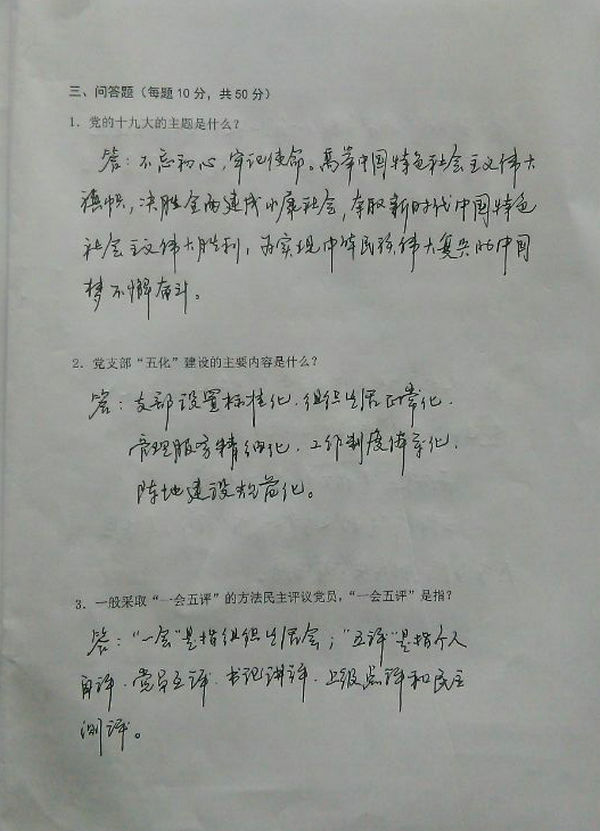 三、问答题（每题10分，共50分）
1．党的十九大的主题是什么？
答：不忘初心，牢记使命。高举中国特色社会主义伟大
旗帜，决胜全面建成小康社会，夺取新时代中国特色
社会主义伟大胜利，为实现中华民族伟大复兴的中国
梦不懈奋斗。
2．党支部“五化”建设的主要内容是什么？
答：支部设置标准化、组织生活正常化、
管理服务精细化、工作制度体系化、
阵地建设规范化。
3．一般采取“一会五评”的方法民主评议党员，“一会五评”是指？
答：“一会”是指组织生活会；“五评”是指个人
自评、党员互评、书记讲评、上级点评和民主
测评。